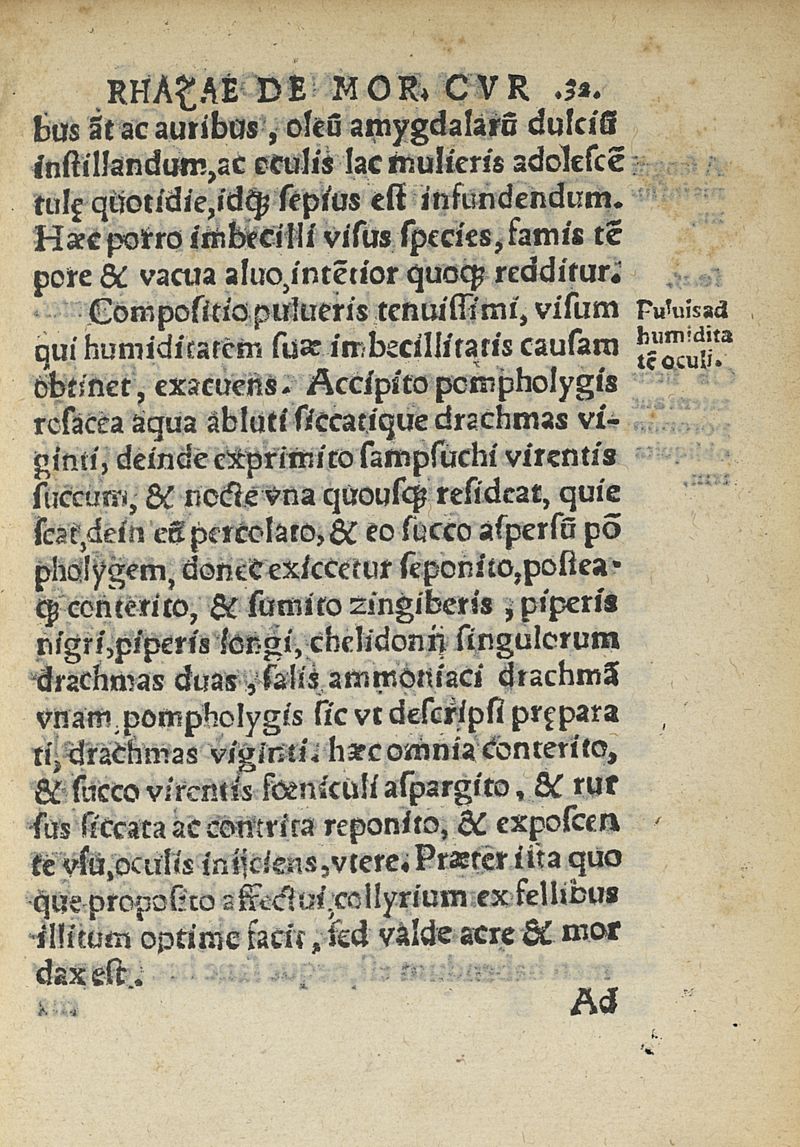 RHAZAE DE MOR. CVR .32.
bus āt ac auribus, oleū amygdalarū dulciū
instillandum, ac oculis lac mulieris adolescē
tulę quotidie, idqꝫ sepius est infundendum.
Hæc porro imbecilli visus species, famis tē
pore & vacua aluo, intētior quoqꝫ redditur.
Compositio pulueris tenuissimi, visum
qui humiditatem suæ imbecillitatis causam
obtinet, exacuens. Accipito pompholygis
rosacea aqua abluti siccatique drachmas vi-
ginti, deinde exprimito sampsuchi virentis
succum, & nocte vna quousqꝫ resideat, quie
scat, dein eū percolato, & eo succo aspersū pō
pholygem, donec exiccetur seponito, postea-
qꝫ conterito, & sumito zingiberis, piperis
nigri, piperis longi, chelidonij singulorum
drachmas duas, salis ammoniaci drachmā
vnam, pompholygis sic vt descripsi prępara
ti, drachmas viginti. hæc omnia conterito,
& succo virentis fœniculi aspargito, & rur
sus siccata ac contrita reponito, & exposcen
te vsu, oculis inijciens, vtere. Præter iita quo
que proposito affectui, collyrium ex fellibus
illitum optime facit, sed valde acre & mor
dax est.
Ad
Puluis ad
humidita
tē oculi.